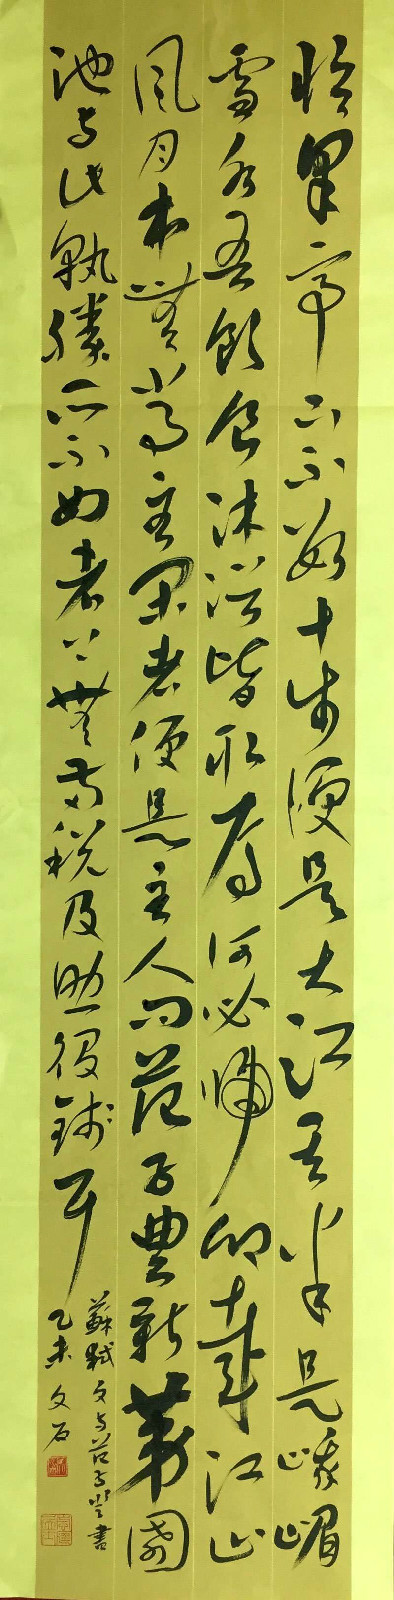 臨皋亭下不數十步便是大江其半是峨嵋
雪水吾飲食沐浴皆取焉何必歸鄉哉江山
風月本無常主閑者便是主人問范子豐新第園
池與此孰勝所不如者上無兩税及助役錢耳
蘇軾文與范子豐書
乙未文石